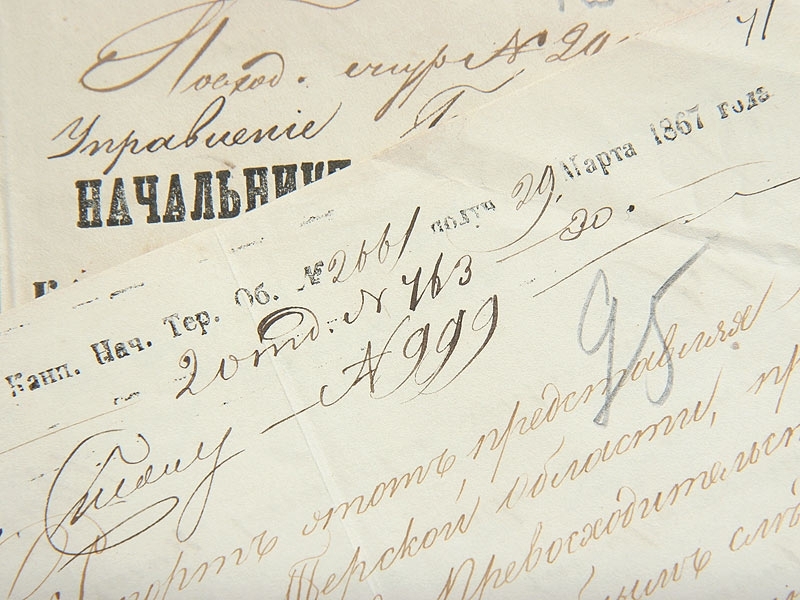 Посход. журн № 20
Управленіе
НАЧАЛЬНИК
Канц. Нач. Тер. Об. № 2661 получ 29 Марта 1867 года
30.
2 отд. № 763
№ 999
95
портъ этотъ, представляя
Терской области,
Превосходительст